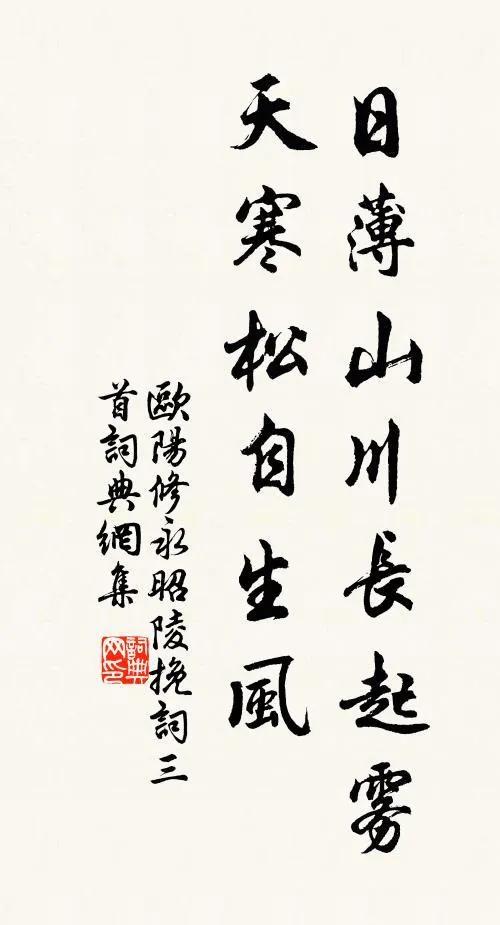 日薄山川長起雾
天寒松自生風
歐陽修永昭陵挽詞三
首詞典網集
詞典
网印